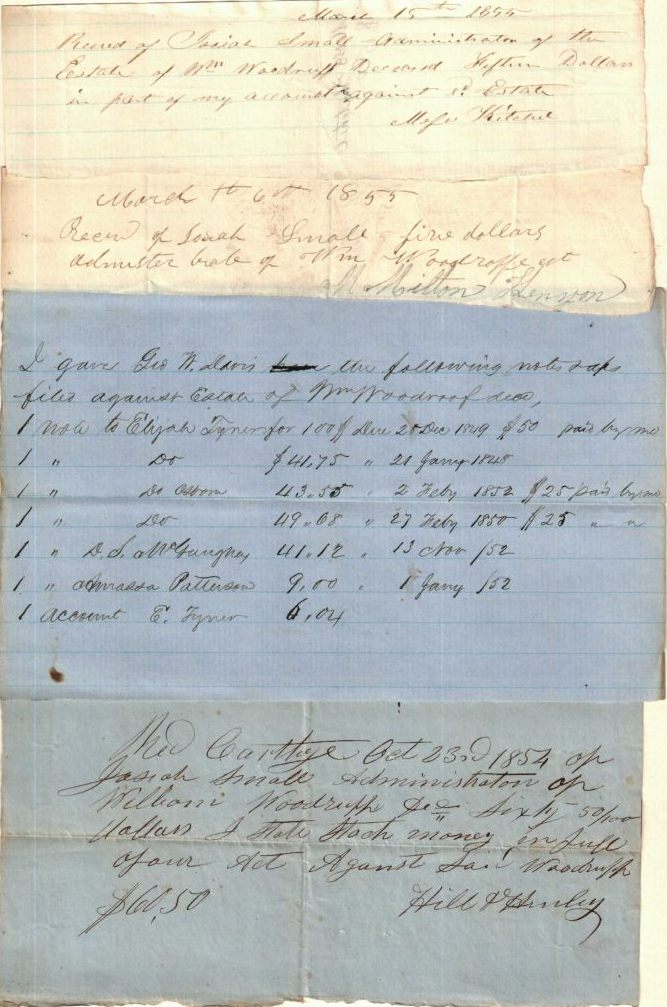 March 15th 1855
Recvd of Josiah Small Administrator of the
Estate of Wm Woodruff Deceased Fifteen Dollars
in part of my account against sd Estate
Kitchel
March th 6th 1855
Recvd of Josiah Small five dollars
of Wm Woodroffe
M Milton
I gave Geo W. Davis the following notes &
filed against Estate of Wm Woodroof decd,
1 note to Elijah Tyner for 100$ Due 25 Dec 1849 $50 paid by me
1 " Do $41.75 " 21 Jany 1848
1 " Do 43.55 " 2 Feby 1852 $25 paid by me
1 " Do 49.68 " 27 Feby 1850 $25 " "
1 " D. S. McGaughey 41.12 " 13 Nov /52
1 " Amassa Patterson 9.00 " 1 Jany /52
1 account E. Tyner 6.04
Recd Carthage Oct 23rd 1854 of
Josiah Small Administrator of
William Woodruff Decd Sixty 50/100
dollars State money in full
of our Act Against Said Woodruff
$60.50 Hill & Henley